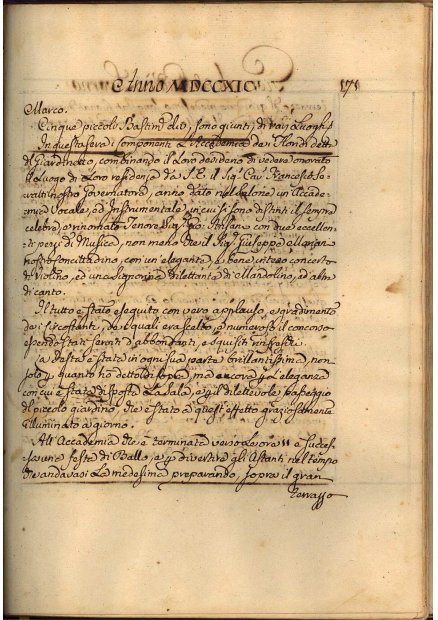 Anno MDCCXIC 171
Marco.
Cinque piccoli Bastimti. sono giunti di vari Luoghi
In questa sera i componenti L'Accademia dei Nobili detta
del Giardinetto, combinando il Loro desiderio di vedere onorato
il Luogo di Loro residenza da S. E. il Sigr. Cav. Francesco
nostro Governatore, anno dato nel Salone un'Accade-
mia Vocale, ed Instrumentale in cui si sono distinti il sempre
celebre, e rinomato Tenore Sigr. con due eccellen-
ti pezzi di Musica, non meno che il Sigr. Giuseppe
nostro Concittadino, con un'elegante, e bene inteso concerto
di Violino, ed una Signorina dilettante di Mandolino, ed altri
di canto.
Il tutto è stato eseguito con vero applauso, e gradimento
dei circostanti, de' quali era scelto, e numeroso il concorso
essendo stati serviti d'abbondanti, e squisiti rinfreschi.
La festa è stata in ogni sua parte brillantissima, non
solo p quanto ho detto di sopra, ma ancora p L'eleganza
con cui è stata disposta La Sala, e p il dilettevole passeggio
del piccolo giardino che è stato a quest'effetto graziosamente
illuminato a giorno.
All'Accademia che è terminata verso Le ore 11 è succes-
sa una festa di Ballo, e p divertire gli Astanti nel tempo
che andavasi La medesima preparando, sopra il gran
Terrazzo